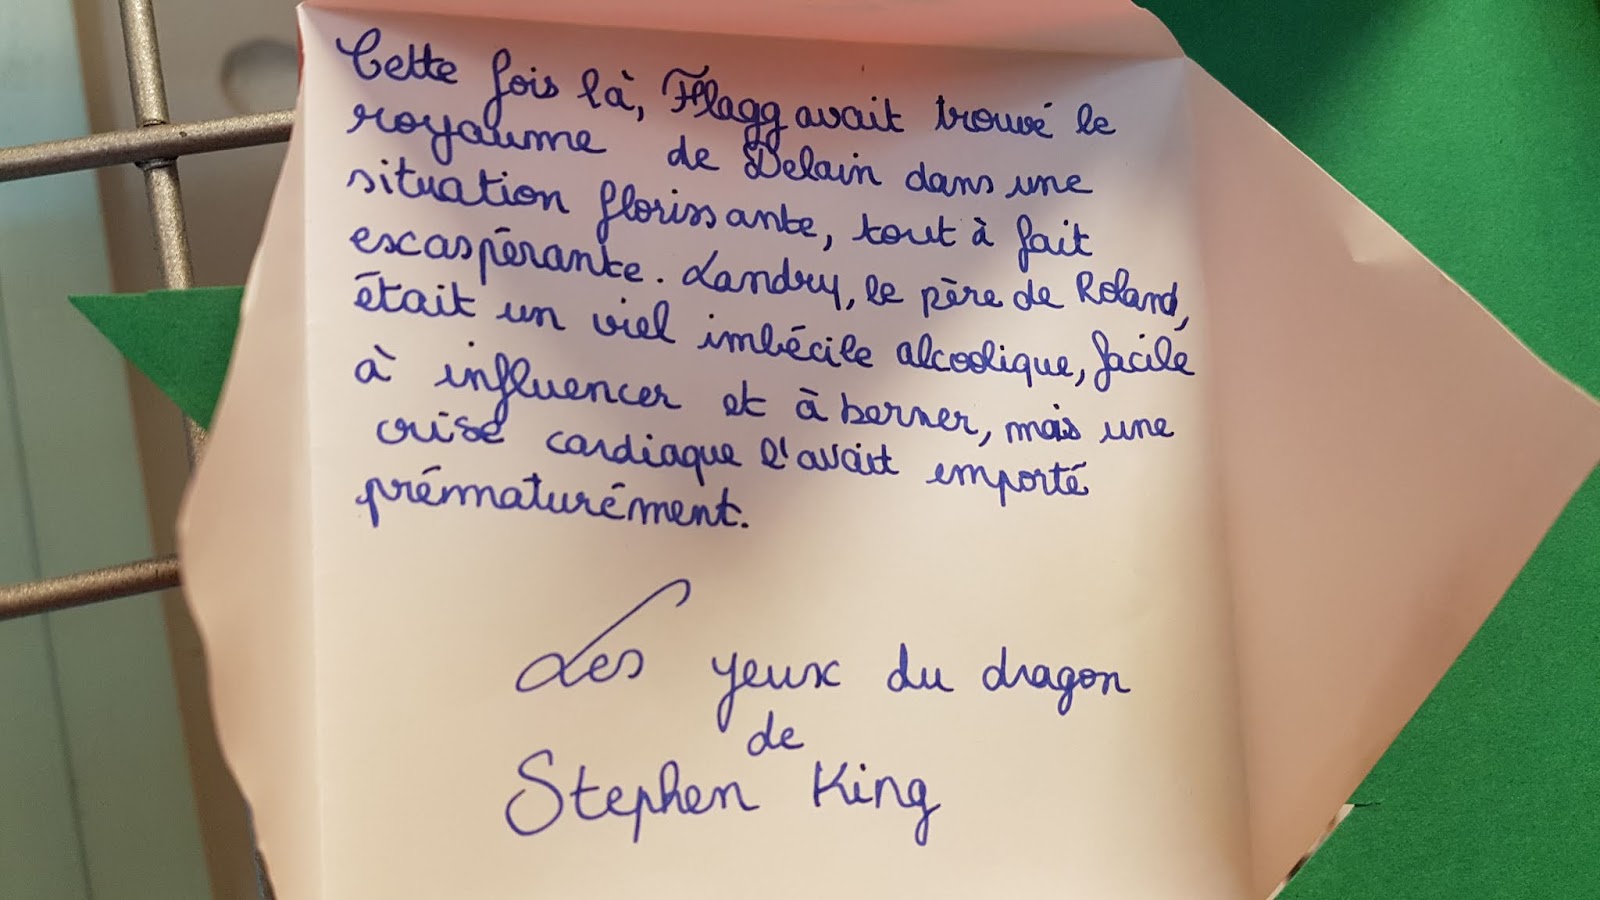 Cette fois là, Flagg avait trouvé le
royaume de Delain dans une
situation florissante, tout à fait
escaspérante. Landry, le père de Roland,
était un viel imbécile alcoolique, facile
à influencer et à berner, mais une
crise cardiaque l'avait emporté
prématurément.
Les yeux du dragon
de
Stephen King